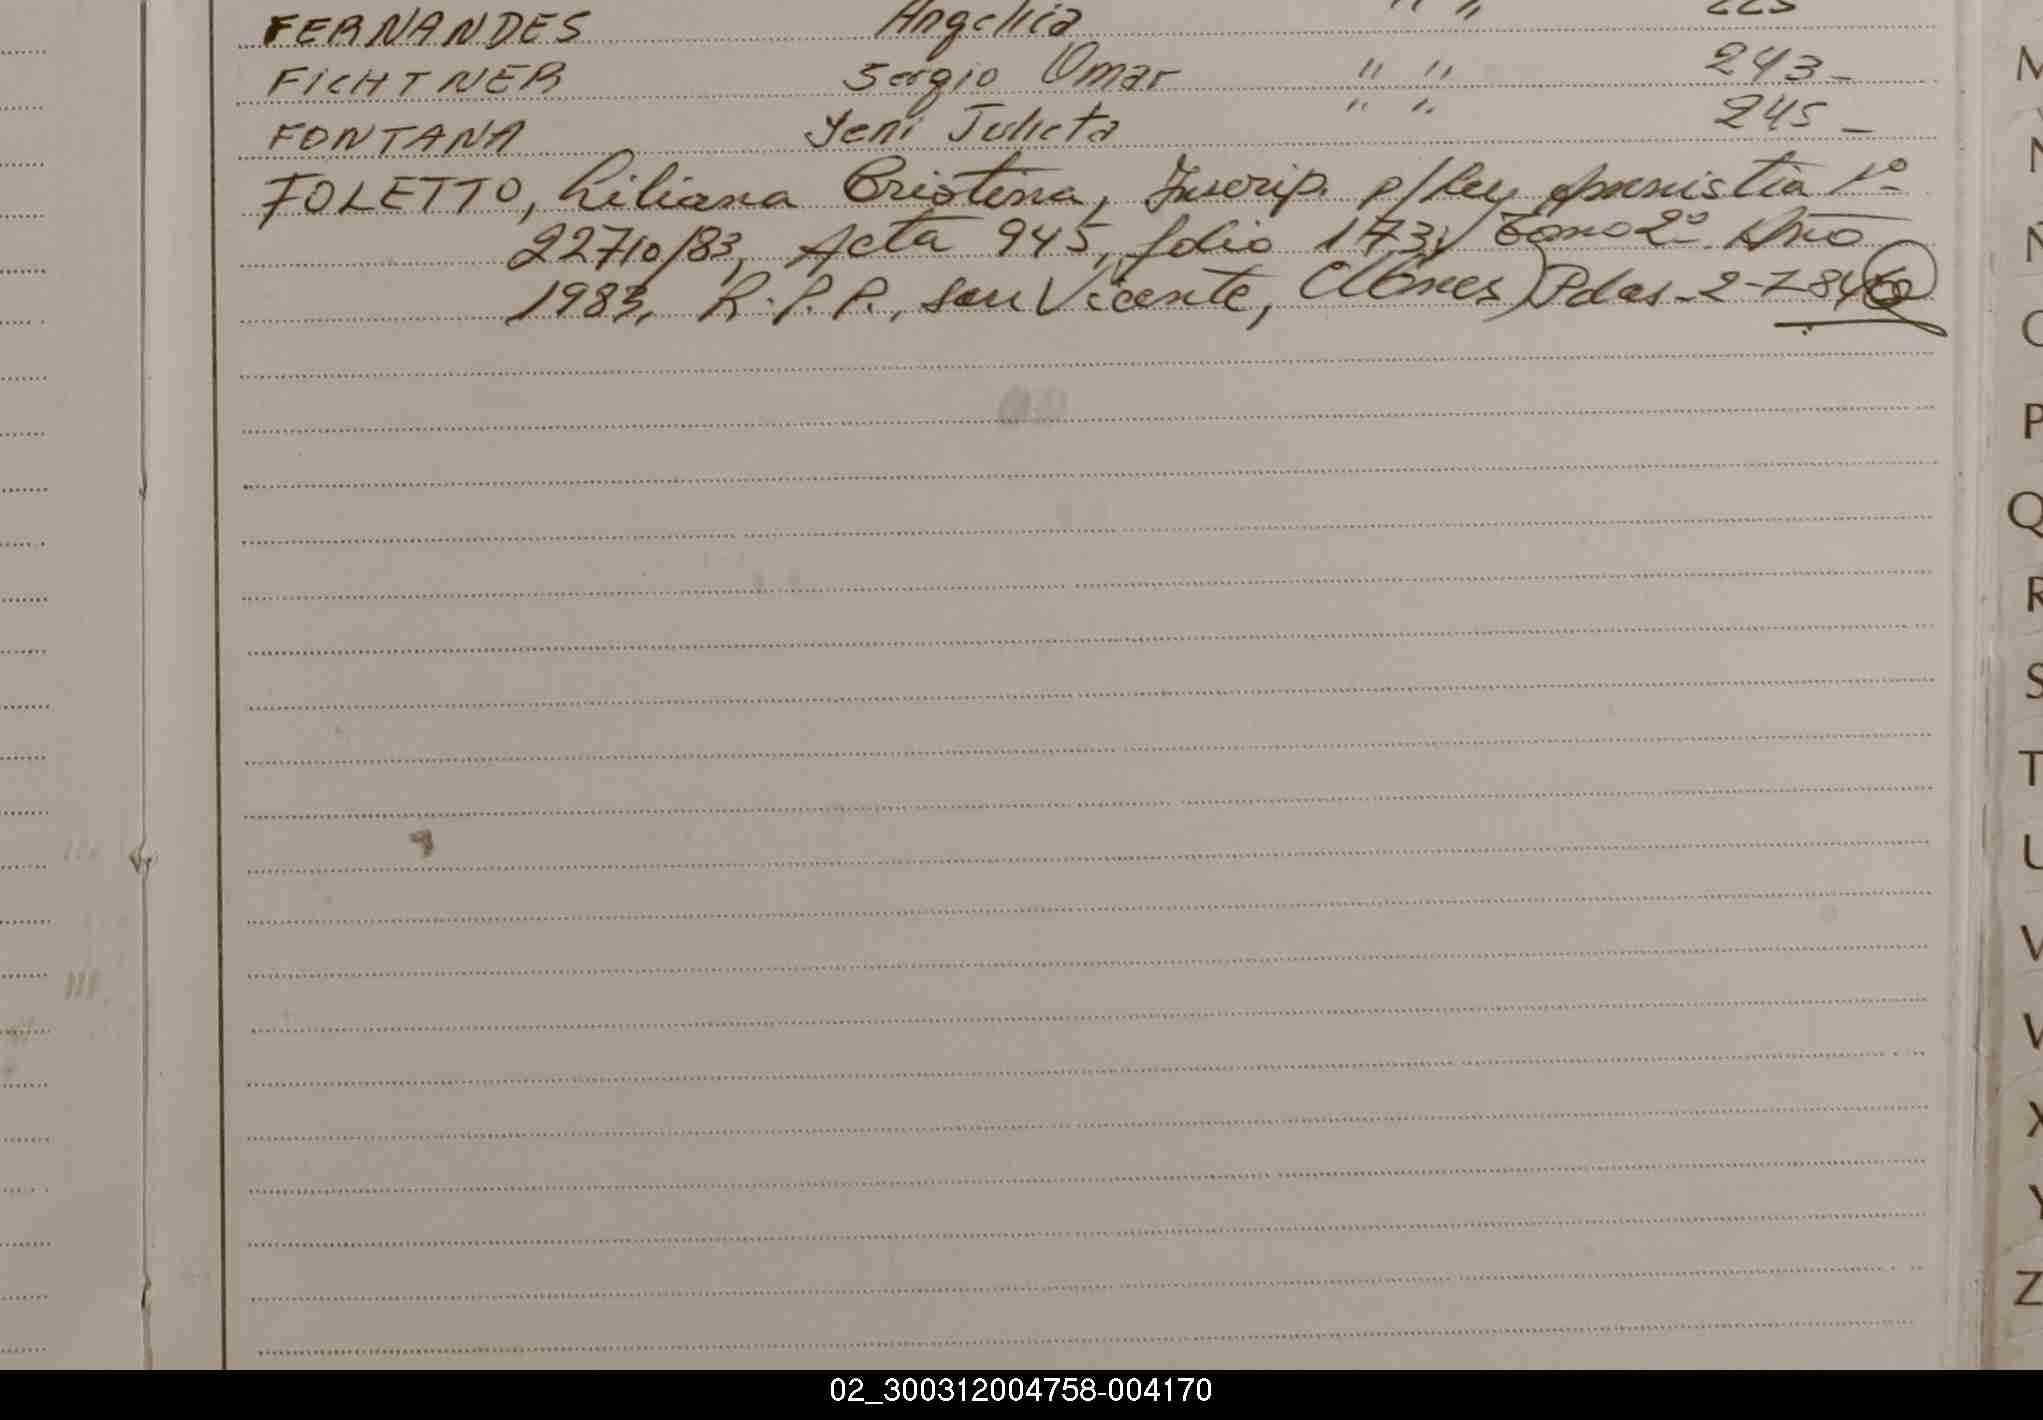 FERNANDES Angelica " " 225
FICHTNER Sergio Omar " " 243-
FONTANA Yeni Julieta " " 245-
FOLETTO, Liliana Cristina, Inscrip. p/Ley Amnistia Nº
22710/83, Acta 945, folio 173, Tomo 2º. Año
1983, R.P.P., San Vicente, Mnes) Pdas. 2-7-84
M
N
Ñ
O
P
Q
R
S
T
U
V
W
X
Y
Z
02_300312004758-004170